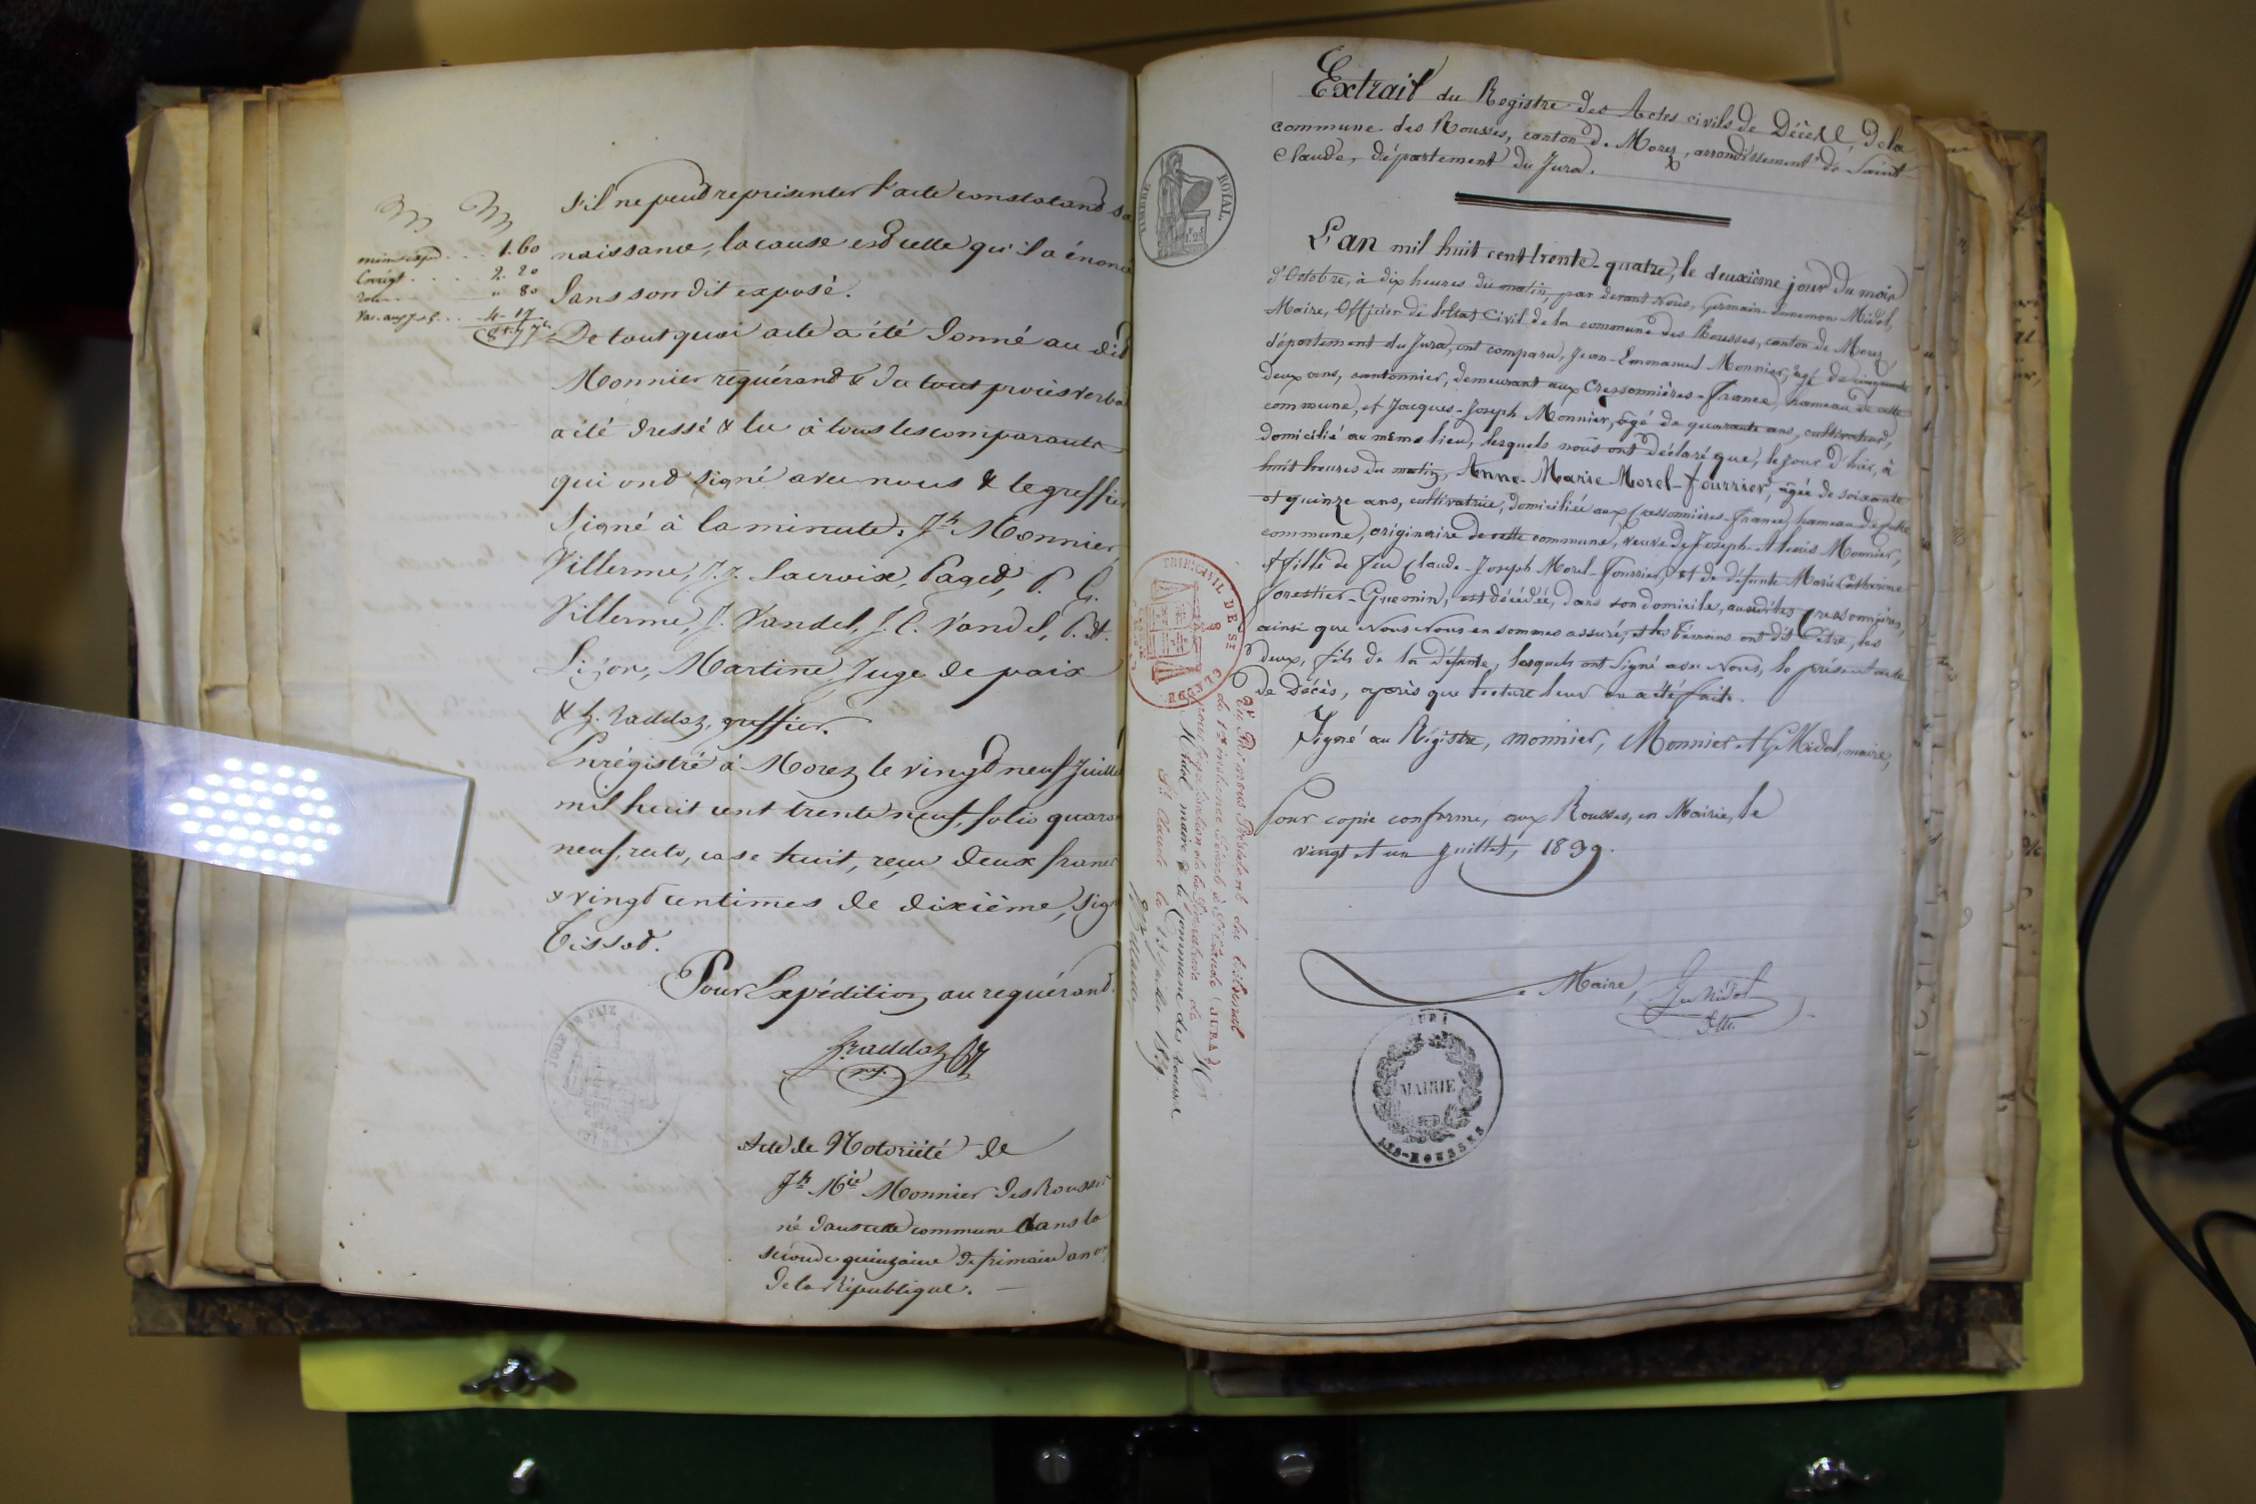 s'il ne peut représenter l'acte constatant sa
naissance, la cause est celle qu'il a énoncé
dans son dit exposé.
De tout quoi acte a été donné au dit
Monnier requérant & du tout procès verbal
a été dressé & lu à tous les comparants
qui ont signé avec nous & le greffier
Signé à la minute. Jh Monnier
Villerme, J. J. Lacroix, Paget, P. G.
Villerme, J. Vandel, J. C. Vandel, P. St.
Lizon, Martine, Juge de paix
& h. Raddoz, greffier.
Enrégistré à Morez le vingt neuf Juillet
mil huit cent trente neuf, folio quarante
neuf, recto, case huit, reçu deux francs
& vingt centimes de dixième, Signé
Tissot.
Pour Expédition au requérant.
1. 60
2. 20
" 80
4. 17
Acte de Notoriété de
Jh Mie Monnier des Rousses
né dans cette commune dans la
seconde quinzaine de frimaire an
de la République.
TIMBRE ROYAL
Extrait du Registre des Actes civils de Décès, de la
commune des Rousses, canton de Morez, arrondissement de Saint-
Claude, département du Jura.
L'an mil huit cent trente-quatre, le deuxième jour du mois
d'Octobre, à dix heures du matin, par devant Nous, Germain Midol,
Maire, Officier de l'état Civil de la commune des Rousses, canton de Morez
département du Jura, ont comparu, Jean-Emmanuel Monnier, âgé de cinquante
deux ans, cantonnier, demeurant aux Cressonnières-France, hameau de cette
commune, et Jacques-Joseph Monnier, âgé de quarante ans, cultivateur,
domicilié au même lieu, lesquels nous ont déclaré que, le jour d'hier, à
huit heures du matin, Anne-Marie Morel-Fourrier, âgée de soixante
et quinze ans, cultivatrice, domiciliée aux Cressonnières-France, hameau de cette
commune, originaire de cette commune, veuve de Joseph-Alexis Monnier,
et fille de feu Claude-Joseph Morel-Fourrier, et de défunte Marie Catherine
Forestier-Guemin, est décédée, dans son domicile, auxdites Cressonnières,
ainsi que Nous Nous en sommes assuré, et les témoins ont dit être, les
deux, fils de la défunte, lesquels ont Signé avec Nous, le présent acte
de Décès, après que lecture leur en a été faite.
Signé au Régistre, monnier, Monnier et G. Midol, maire,
Pour copie conforme, aux Rousses, en Mairie, le
vingt et un Juillet, 1839.
Maire,
MAIRIE
LES-ROUSSES
JURA
TRIB. CIVIL DE St CLAUDE
Vu Par nous Président du tribunal
de 1re instance Séant à St Claude (JURA)
pour légalisation de la Signature de Mr
Midol maire de la Commune des Rousses
St Claude le 1839.